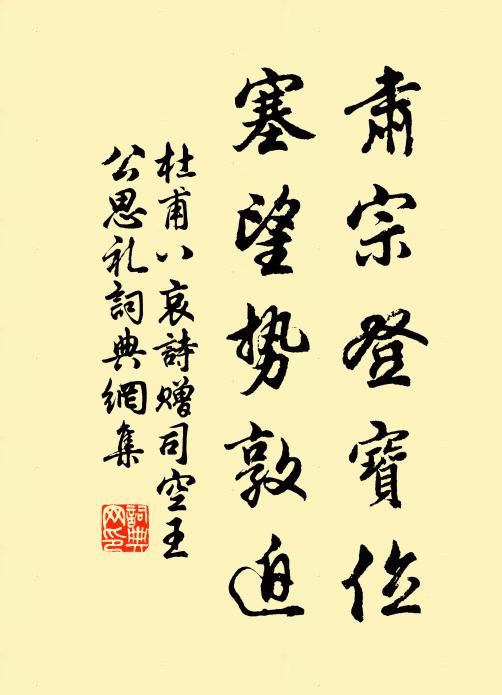 肃宗登寶位
塞望势敦迫
杜甫八哀詩赠司空王
公思礼詞典網集
詞典
网印